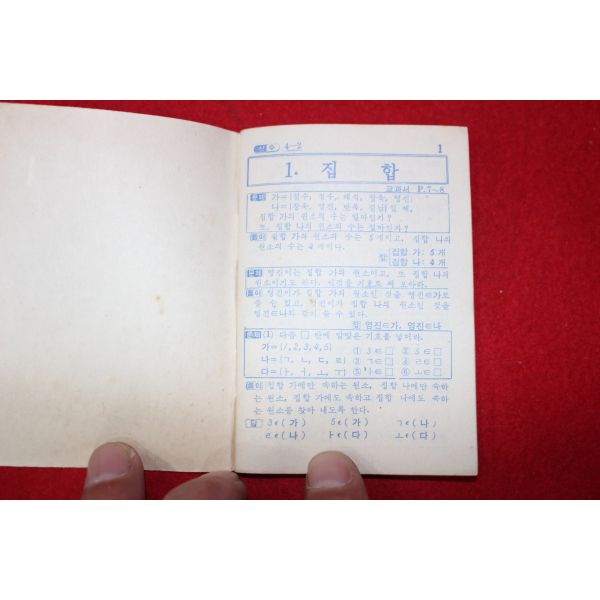 산수 4-2 1
1. 집 합
교과서 P.7~8
문제 가={철수, 정수, 태식, 창욱, 영진}
나={창욱, 영진, 민욱, 길남}일 때,
집합 가의 원소의 수는 얼마인가?
또, 집합 나의 원소의 수는 얼마인가?
풀이 집합 가의 원소의 수는 5개이고, 집합 나의
원소의 수는 4개이다.
답 집합 가: 5개
집합 나: 4개
문제 영진이는 집합 가의 원소이고, 또 집합 나의
원소이기도 하다. 이것을 기호로 써 보아라.
풀이 영진이가 집합 가의 원소인 것을 영진∈가로
쓸 수 있고, 영진이가 집합 나의 원소인 것을
영진∈나와 같이 쓸 수 있다.
답 영진∈가, 영진∈나
문제 (1) 다음 □ 안에 알맞은 기호를 넣어라.
가={1,2,3,4,5} ① 3∈□ ② 5∈□
나={ㄱ, ㄴ, ㄷ, ㄹ} ③ ㄱ∈□ ④ ㄹ∈□
다={ㅏ, ㅓ, ㅗ, ㅜ} ⑤ ㅏ∈□ ⑥ ㅗ∈□
풀이 집합 가에만 속하는 원소, 집합 나에만 속하
는 원소, 집합 가에도 속하고 집합 나에도 속하
는 원소들을 찾아 내도록 한다.
답 3∈(가) 5∈(가) ㄱ∈(나)
ㄹ∈(나) ㅏ∈(다) ㅗ∈(다)